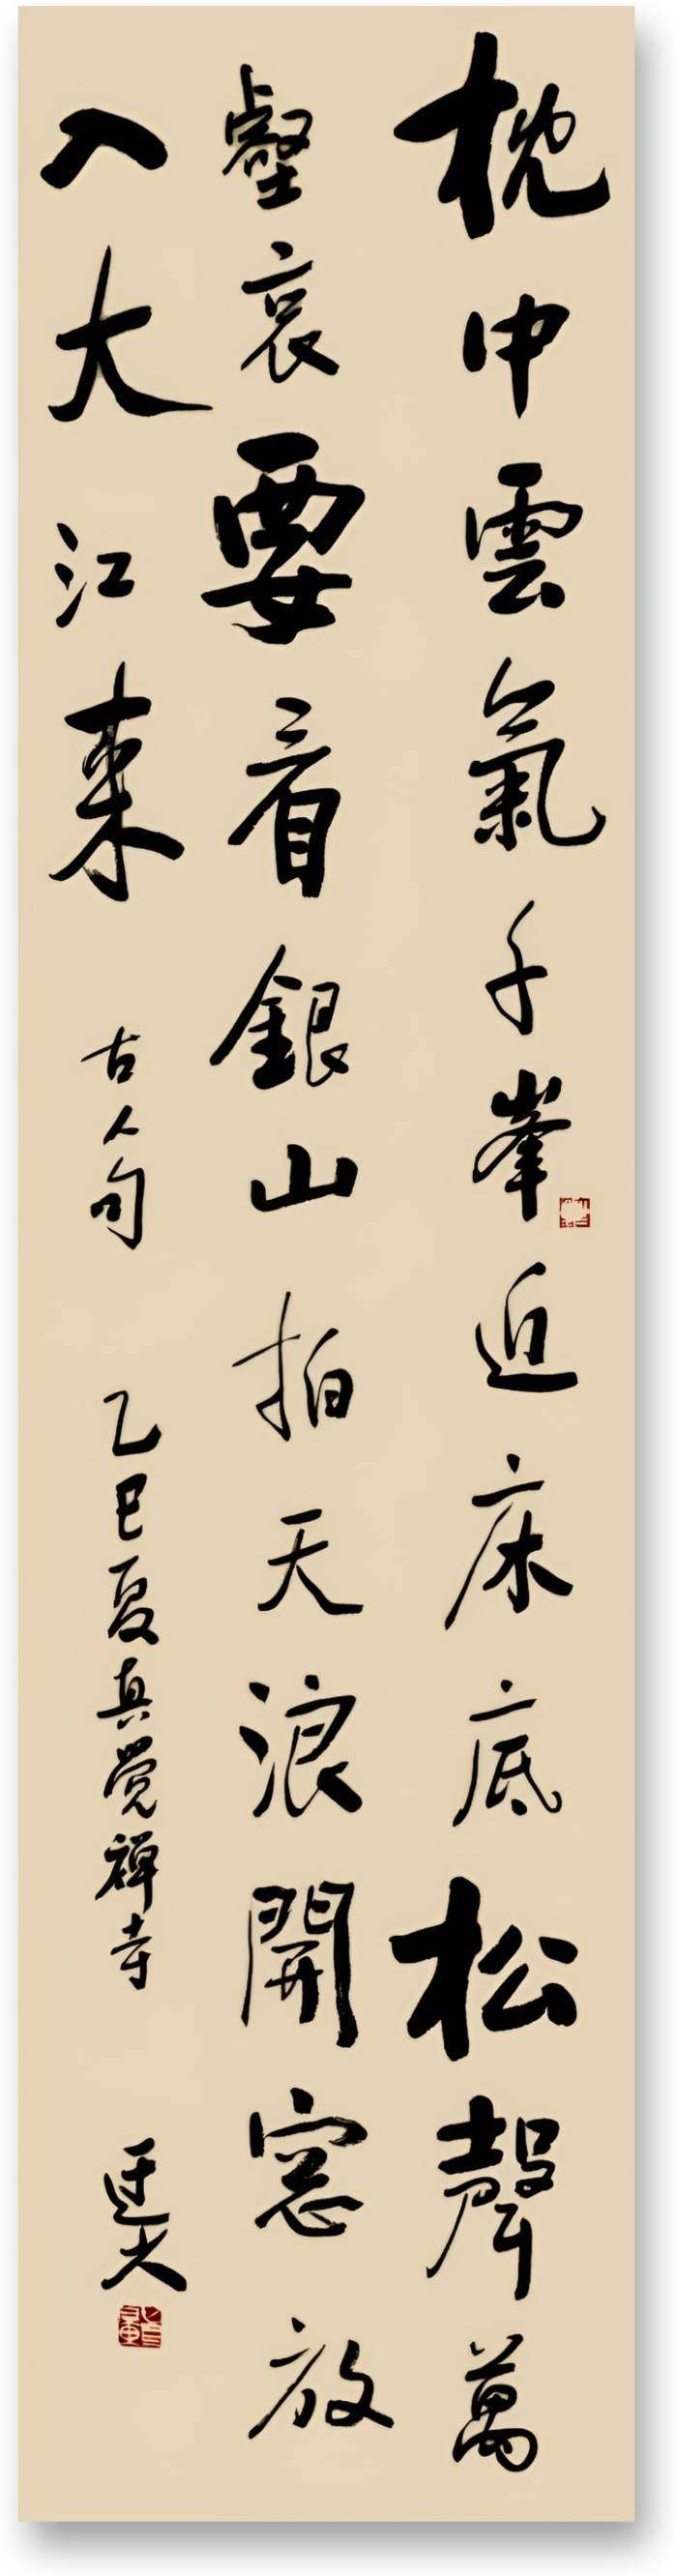 枕中雲氣千峯近床底松聲萬
壑哀要看銀山拍天浪開窓放
入大江來 古人句 乙巳夏真覺禪寺